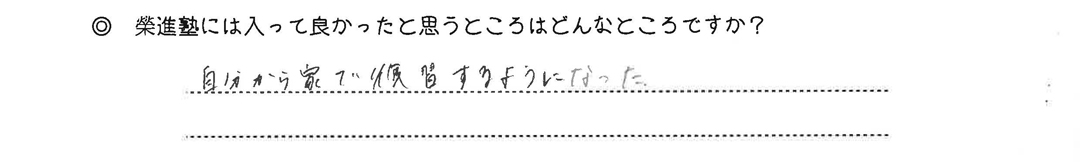 ◎ 榮進塾には入って良かったと思うところはどんなところですか？
自分から家で復習するようになった